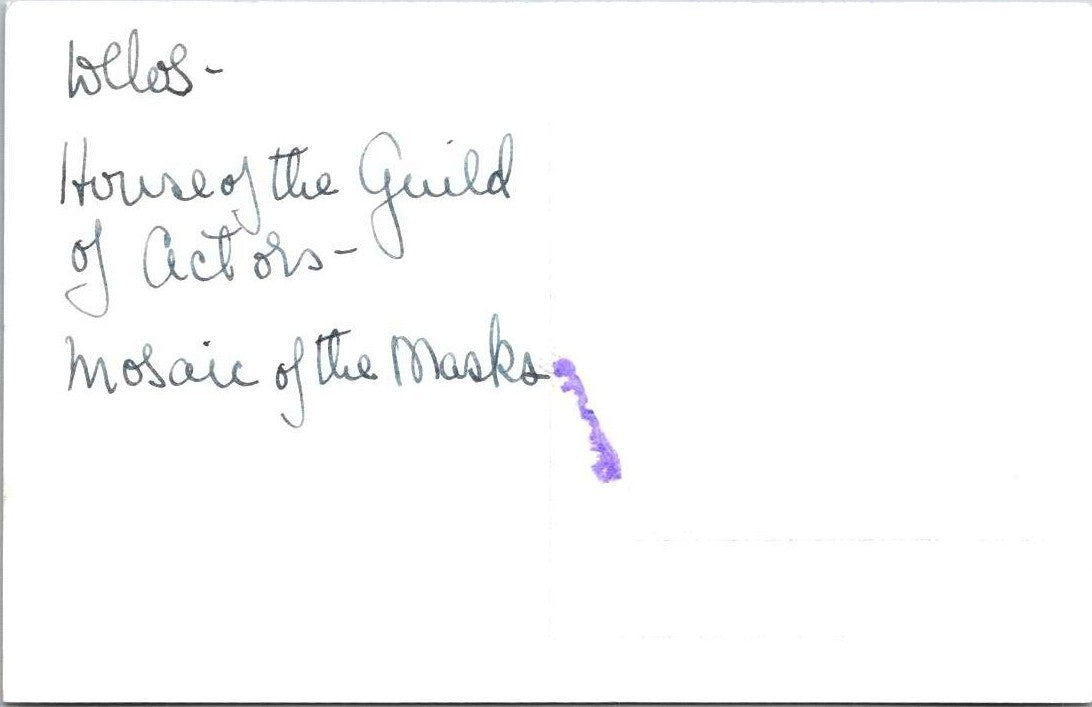 Delos -
House of the Guild
of Actors -
Mosaic of the Masks